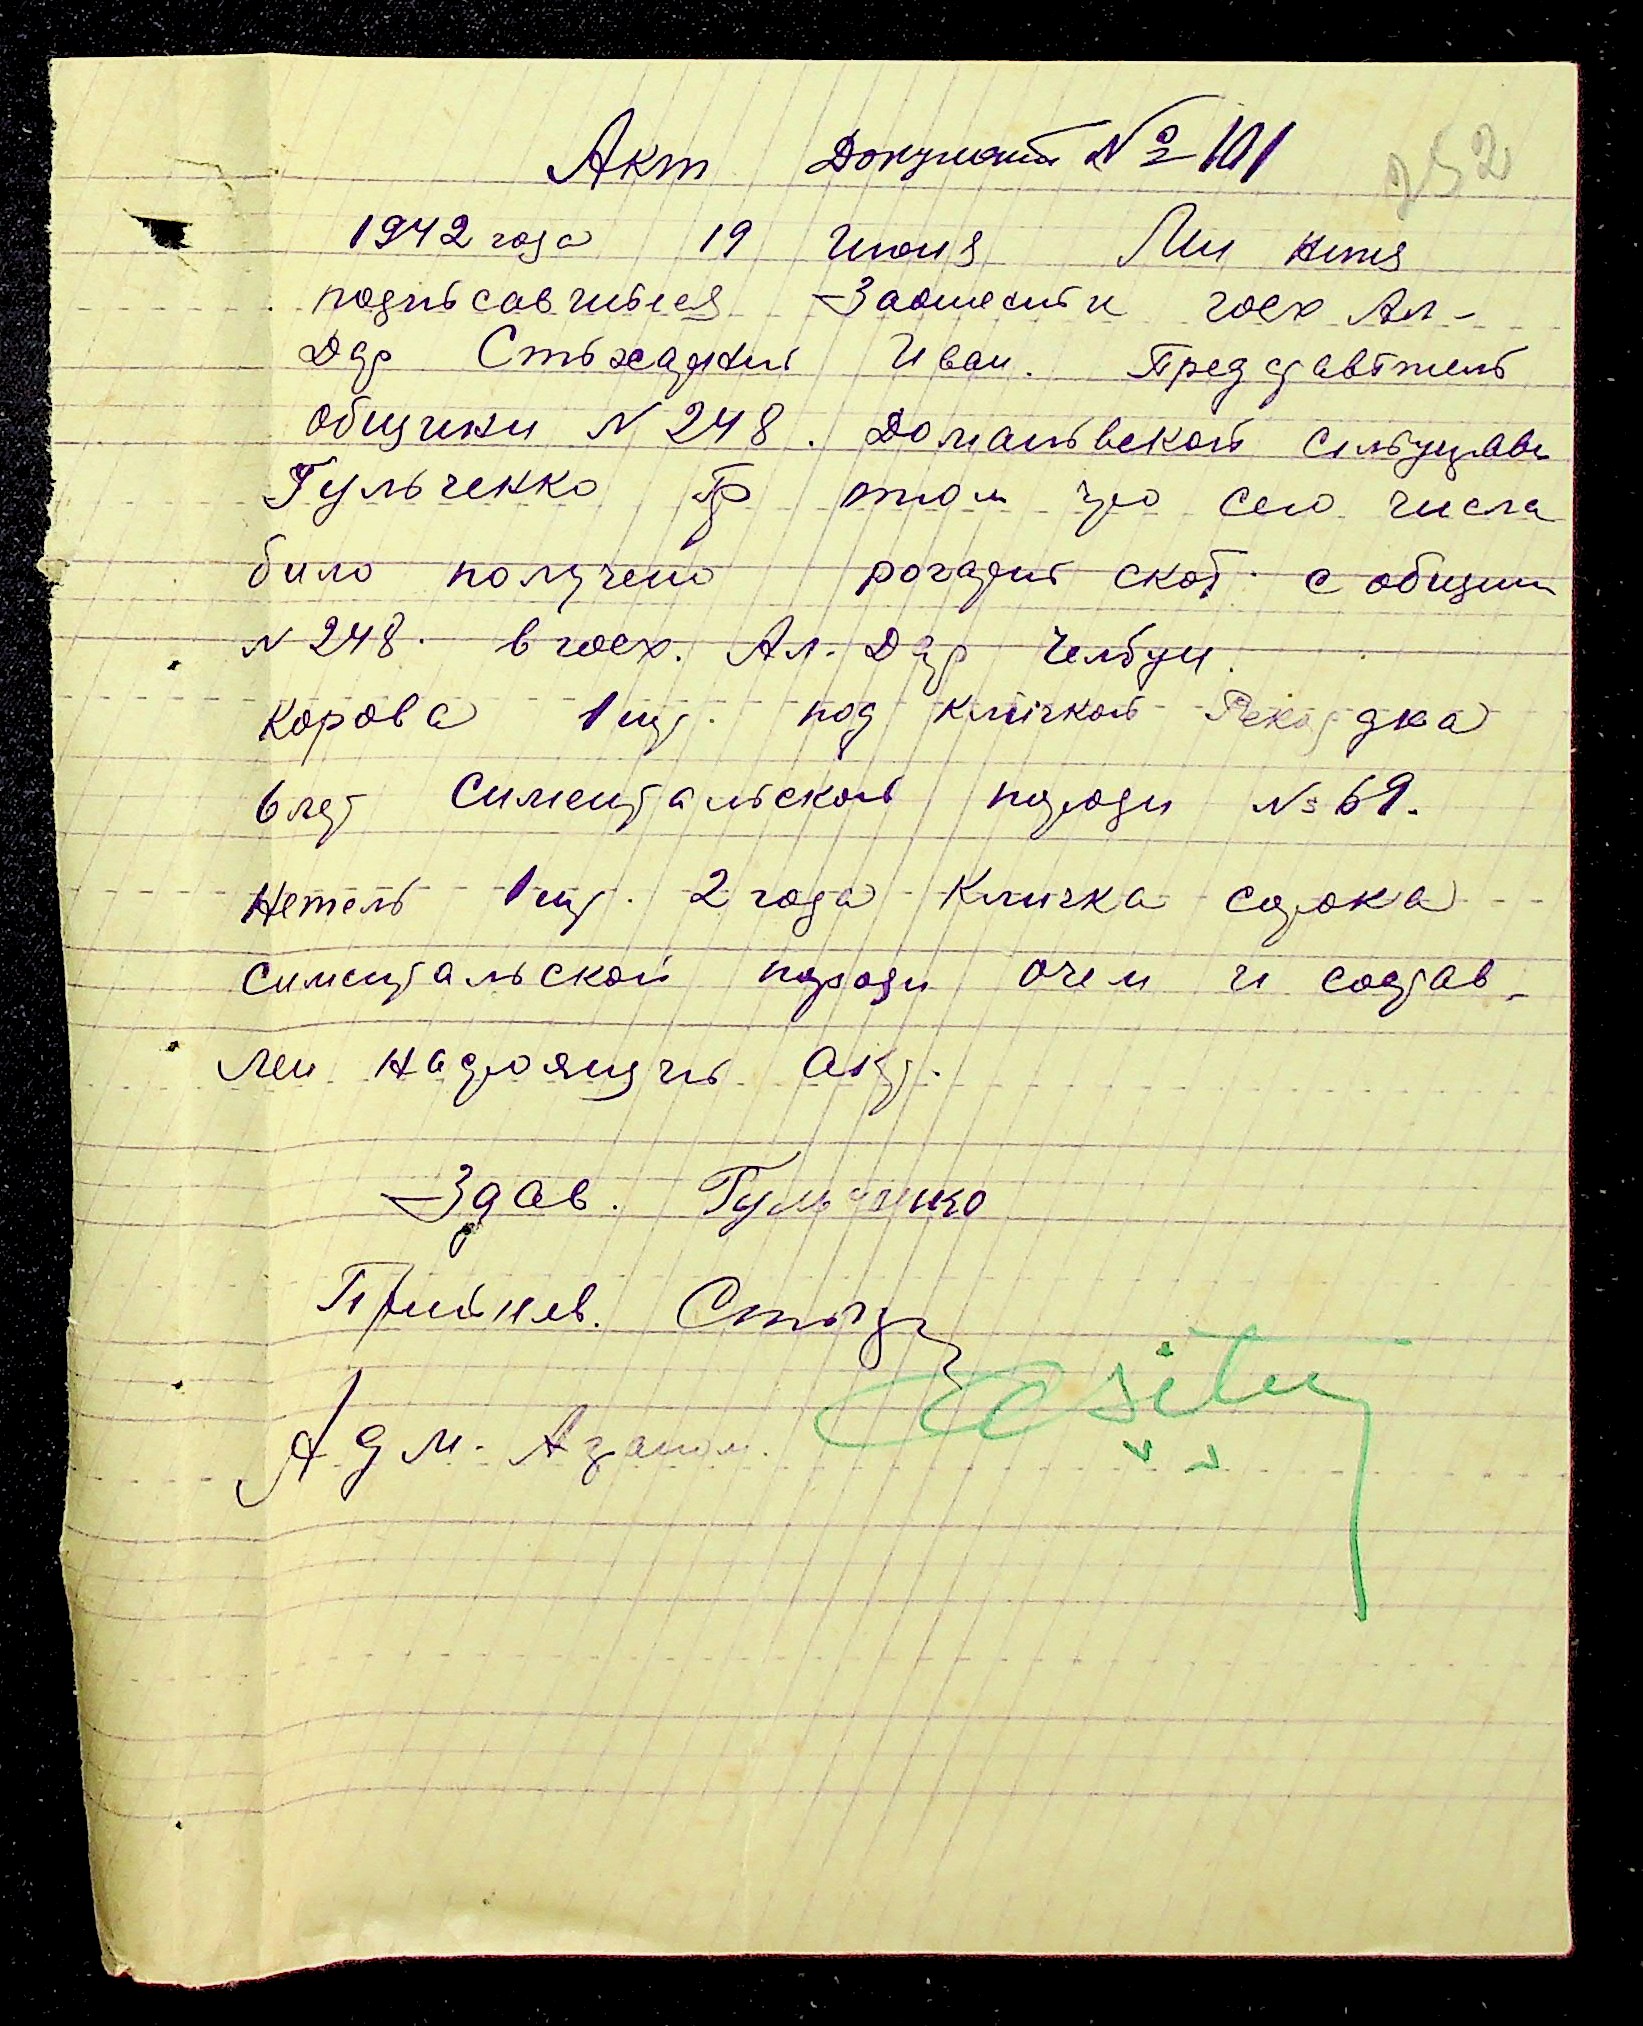 Акт Документ № 101 252
1942 года 19 Июня Ми ниже
подписавшиеся Заотехник госх Ал-
Дар Иван. Представитель
общини N 248. Доманьвской сильуправ
Гульченко В том що сего числа
било получено рогатий скот. с общини
N 248. в госх. Ал. Дар
Корова 1 шт. под кличкой Рекордка
6 лет Симентальской породи № 69.
Нетель 1 шт. 2 года Кличка сорока
симентальской породи очем и состав-
лен настоящий акт.
Здав. Гульченко
Прийняв.
Адм. Агроном.